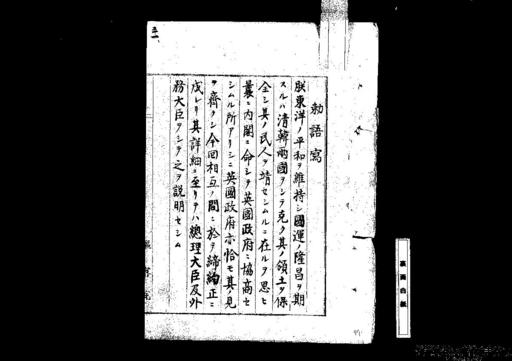 勅語寫
朕東洋ノ平和ヲ維持シ國運ノ隆昌ヲ期
スルハ清韓兩國ヲシテ克ク其ノ領土ヲ保
全シ其ノ民人ヲ靖セシムルニ在ルヲ思ヒ
曩ニ内閣ニ命シテ英國政府ニ協商セ
シムル所アリシニ英國政府亦恰モ其ノ見
ヲ齊クシ今回相互ノ間ニ於テ締約正ニ
成レリ其詳細ニ至リテハ總理大臣及外
務大臣ヲシテ之ヲ説明セシム
裏面白紙